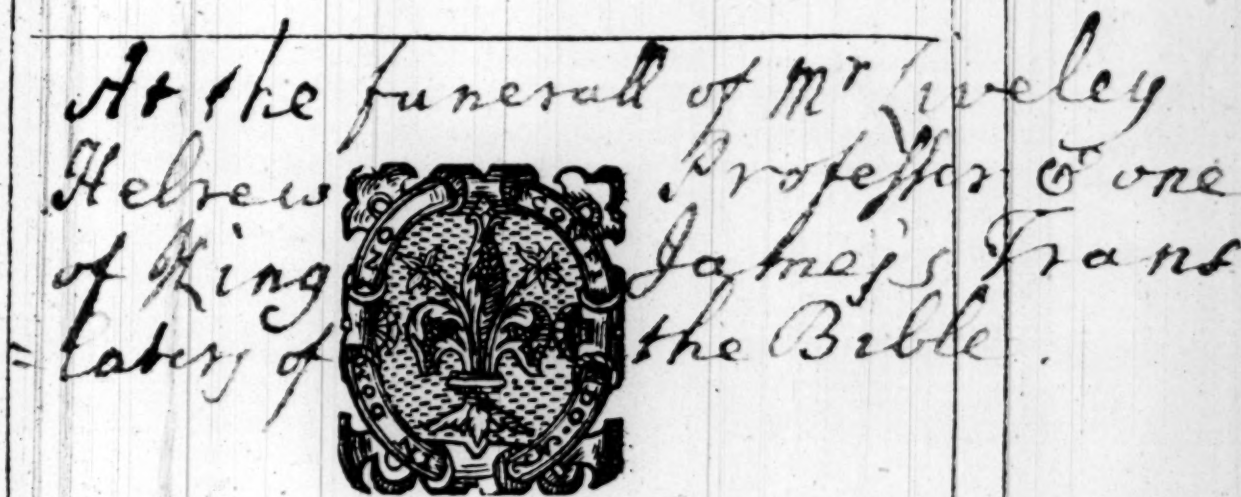 At the funerall of Mr Liveley
Hebrew Professor & one
of King James's Trans
=lators of the Bible.